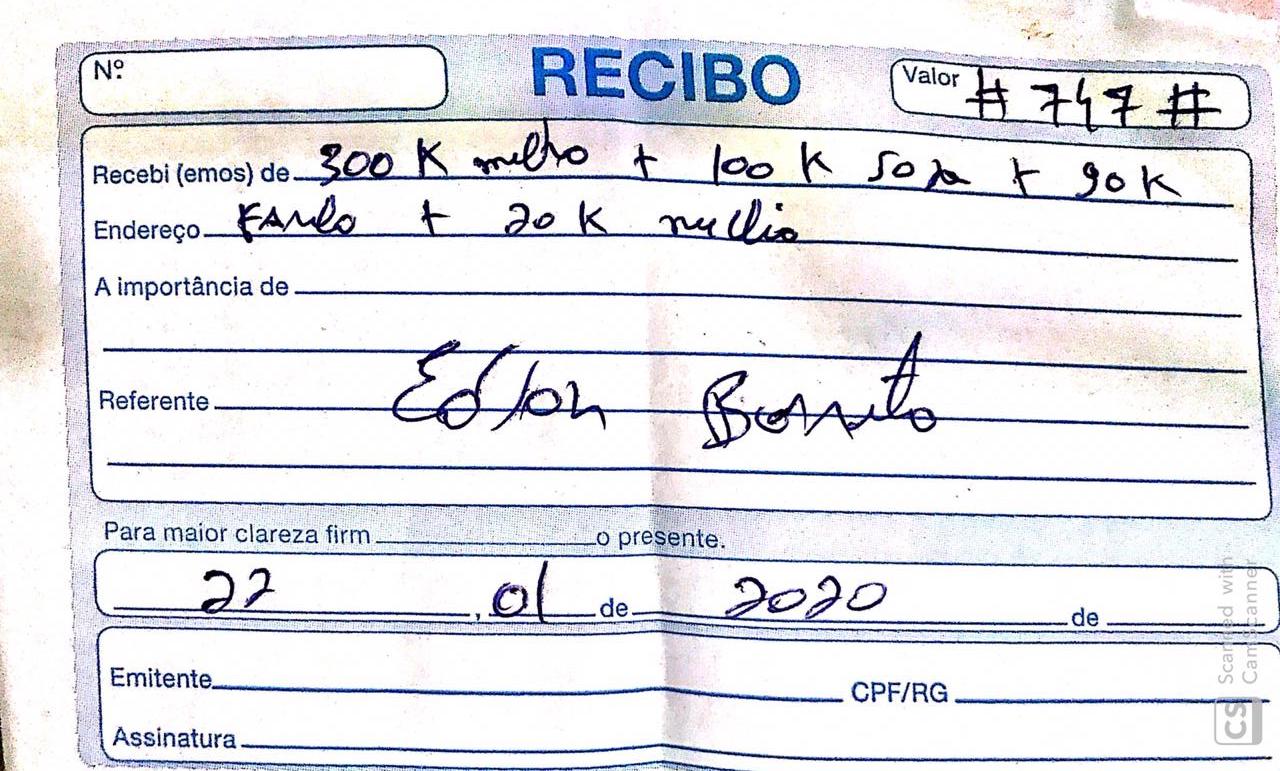 Nº
RECIBO
Valor # 747 #
Recebi (emos) de 300 K milho + 100 K soja + 90 K
Endereço Farelo + 20 K nucllio
A importância de
Referente Edson
Para maior clareza firm o presente.
22, 01 de 2020 de
Emitente CPF/RG
Assinatura
CS Scanned with
CamScanner